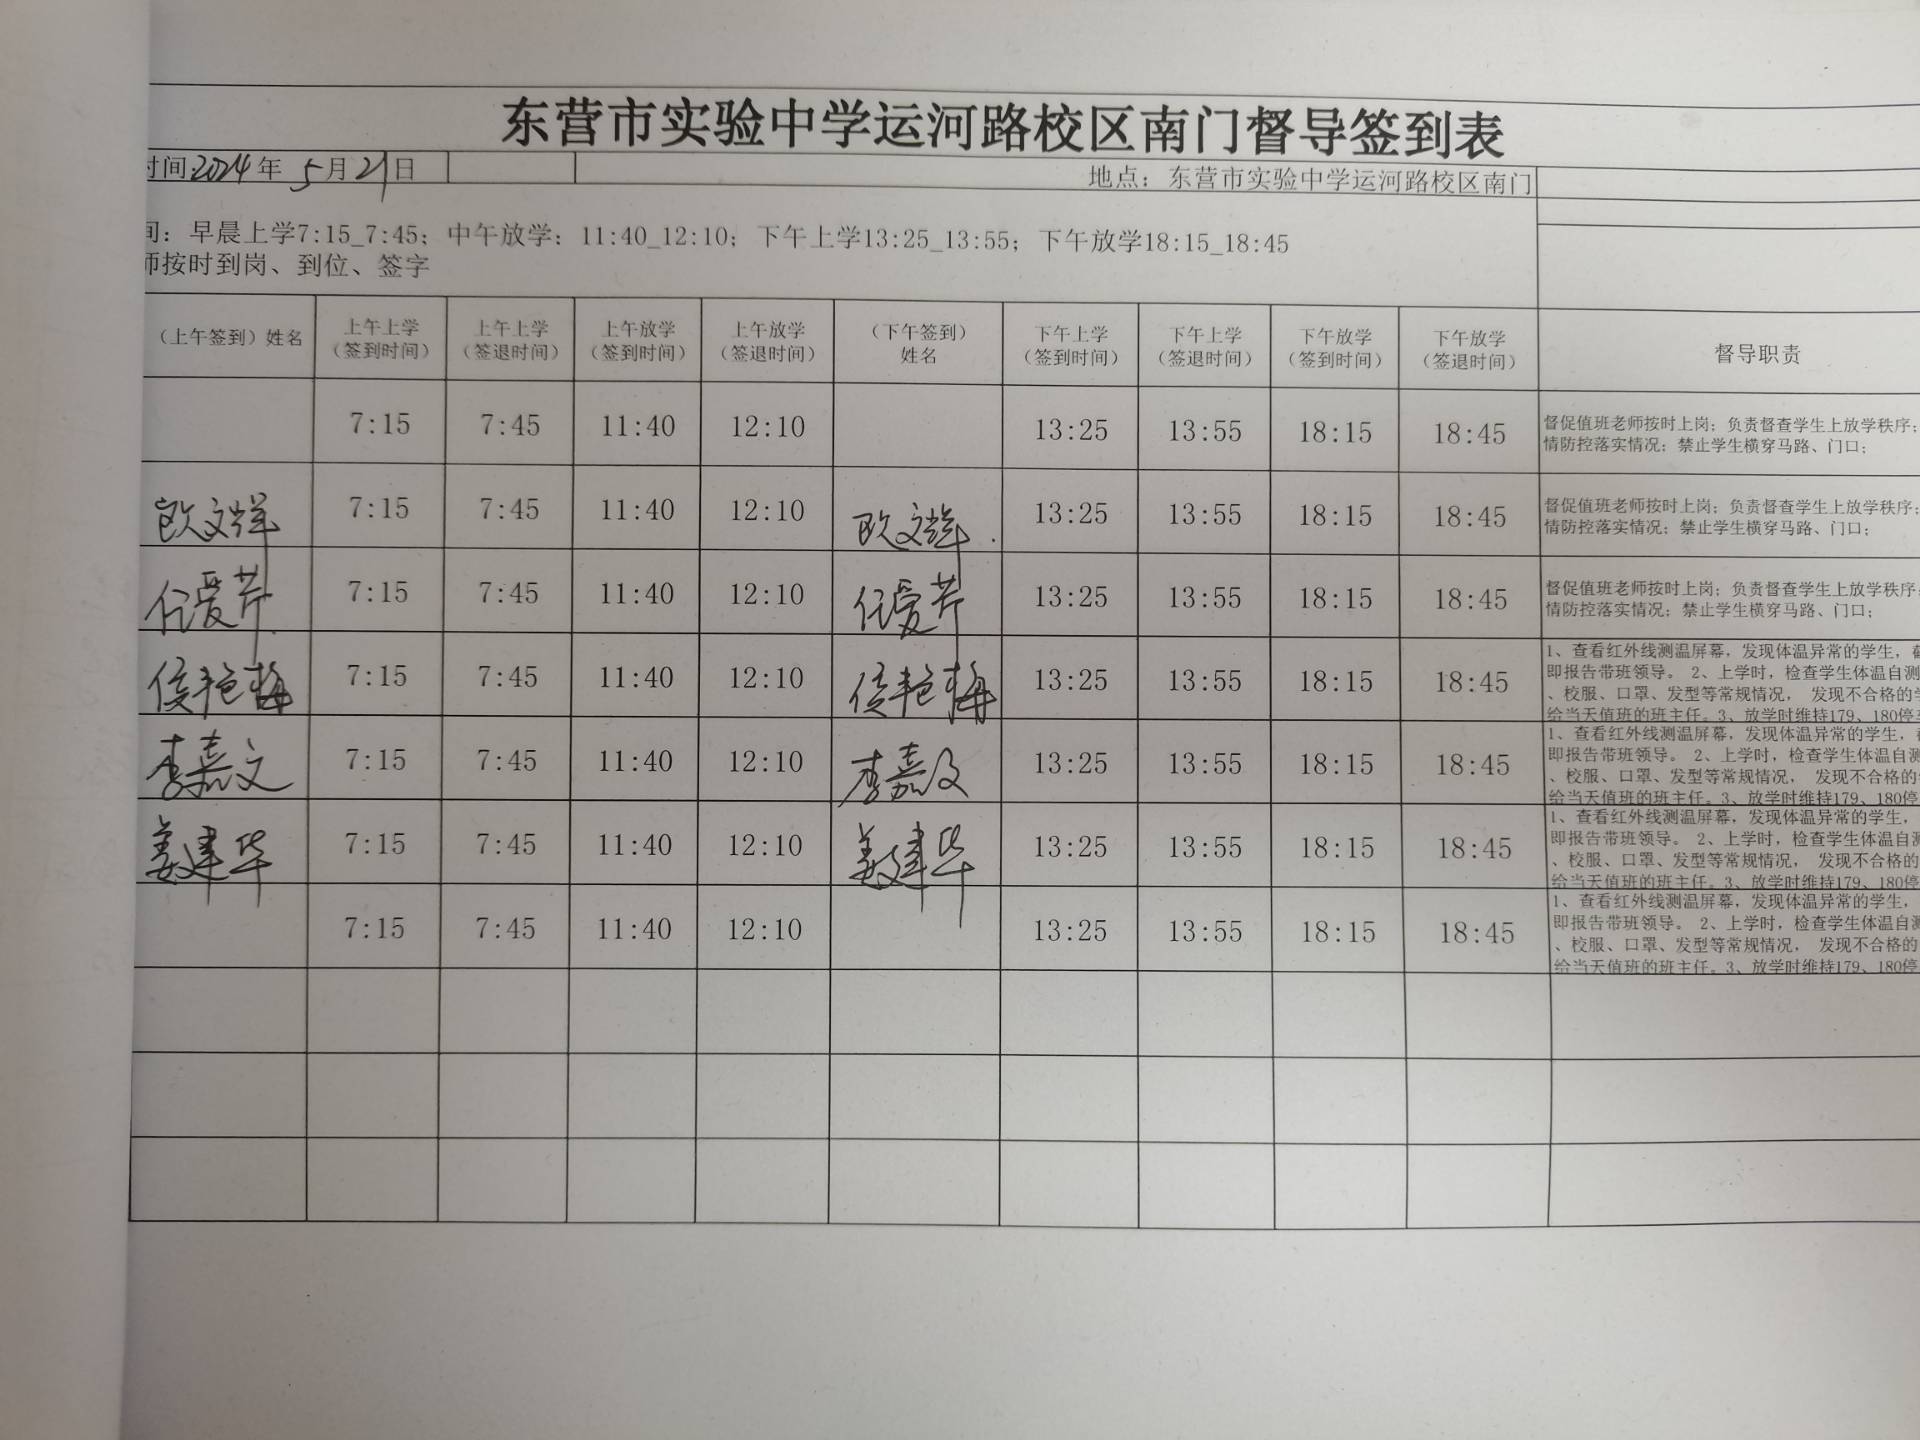 东营市实验中学运河路校区南门督导签到表
时间:2024年 5月21日 地点：东营市实验中学运河路校区南门
间：早晨上学7:15_7:45；中午放学：11:40_12:10；下午上学13:25_13:55；下午放学18:15_18:45
师按时到岗、到位、签字
（上午签到）姓名 上午上学（签到时间） 上午上学（签退时间） 上午放学（签到时间） 上午放学（签退时间） （下午签到）姓名 下午上学（签到时间） 下午上学（签退时间） 下午放学（签到时间） 下午放学（签退时间） 督导职责
7:15 7:45 11:40 12:10 13:25 13:55 18:15 18:45 督促值班老师按时上岗；负责督查学生上放学秩序；
情防控落实情况；禁止学生横穿马路、门口；
欧文 7:15 7:45 11:40 12:10 欧文 13:25 13:55 18:15 18:45 督促值班老师按时上岗；负责督查学生上放学秩序；
情防控落实情况；禁止学生横穿马路、门口；
任爱芹 7:15 7:45 11:40 12:10 任爱芹 13:25 13:55 18:15 18:45 督促值班老师按时上岗；负责督查学生上放学秩序
情防控落实情况；禁止学生横穿马路、门口；
侯艳梅 7:15 7:45 11:40 12:10 侯艳梅 13:25 13:55 18:15 18:45 1、查看红外线测温屏幕，发现体温异常的学生，
即报告带班领导。 2、上学时，检查学生体温自测
、校服、口罩、发型等常规情况， 发现不合格的学
给当天值班的班主任。3、放学时维持179、180停
李嘉文 7:15 7:45 11:40 12:10 李嘉文 13:25 13:55 18:15 18:45 1、查看红外线测温屏幕，发现体温异常的学生，
即报告带班领导。 2、上学时，检查学生体温自测
、校服、口罩、发型等常规情况， 发现不合格的
给当天值班的班主任。3、放学时维持179、180停
姜建华 7:15 7:45 11:40 12:10 姜建华 13:25 13:55 18:15 18:45 1、查看红外线测温屏幕，发现体温异常的学生，
即报告带班领导。 2、上学时，检查学生体温自测
、校服、口罩、发型等常规情况， 发现不合格的
给当天值班的班主任。3、放学时维持179、180停
7:15 7:45 11:40 12:10 13:25 13:55 18:15 18:45 1、查看红外线测温屏幕，发现体温异常的学生，
即报告带班领导。 2、上学时，检查学生体温自测
、校服、口罩、发型等常规情况， 发现不合格的
给当天值班的班主任。3、放学时维持179、180停